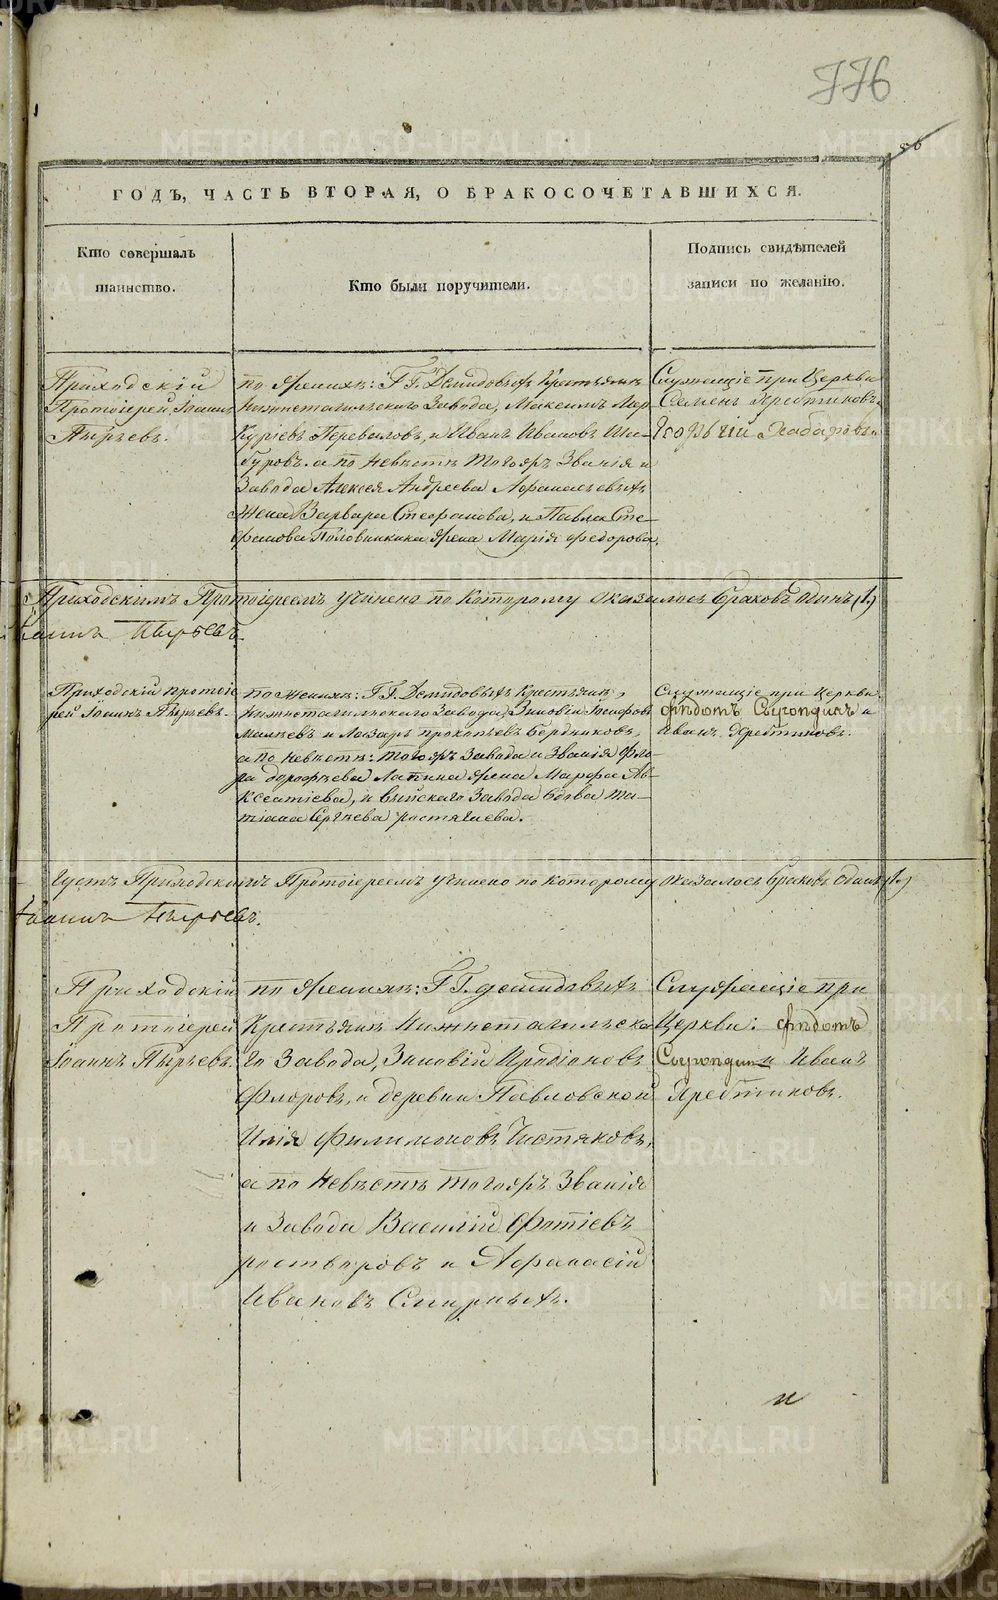 776
86
ГОДЪ, ЧАСТЬ ВТОРАЯ, О БРАКОСОЧЕТАВШИХСЯ.
Кто совершалъ
таинство.
Кто были поручители.
Подпись свидѣтелей
записи по желанію.
Приходскій
Протоіерей Іоаннъ
Пырьевъ.
по женихѣ: ГГ. Демидовыхъ Крестьяне
Нижнетагильскаго Завода, Максимъ Лар
Куріевъ Переваловъ, и Иванъ Ивановъ Ши-
буровъ. а по невѣстѣ тогожъ Званія и
Завода Алексея Андреева Афанасьевыхъ
жена Варвара Стефанова, и Павла Сте-
фанова Половинкина жена Марія Федорова.
Служащіе при Церкви
Семенъ Хребтиковъ
Георгій Хабаровъ
Приходскимъ Протоіереемъ учинено по которому оказалось браковъ одинъ (1.)
Іоаннъ Пырьевъ.
Приходскій протоіе
рей Іоаннъ Пырьевъ.
по женихѣ: ГГ. Демидовыхъ Крестьяне,
Нижнетагильскаго Завода, Зиновій Іосифовъ
и Лазарь прокопьевъ Бердниковъ,
а по невѣстѣ: тогожъ Завода и Званія Фло-
ра дорофѣева Лапина жена Марфа Ав-
ксентіева, и выйскаго Завода вдова та-
тіана Сергѣева растягаева.
Служащіе при Церкви
Ѳедотъ Сыропдинъ и
Иванъ Хребтиковъ.
густъ Приходскимъ Протоіереемъ учинено по которому оказалось браковъ одинъ (1.)
Іоаннъ Пырьевъ.
Приходскій
Протоіерей
Іоаннъ Пырьевъ.
по женихѣ: ГГ. демидовыхъ
Крестьяне Нижнетагильска
го Завода, Зиновій Иродіоновъ
Флоровъ, и деревни Павловской
Илія Филимоновъ Чистяковъ,
а по невѣстѣ тогожъ Званія
и Завода Василій Фотіевъ
растворовъ и Афанасій
Ивановъ Смирныхъ.
Служащіе при
Церкви: Ѳедотъ
Сыропдинъ и Иванъ
Хребтиковъ.
и
METRIKI.GASO-URAL.RU